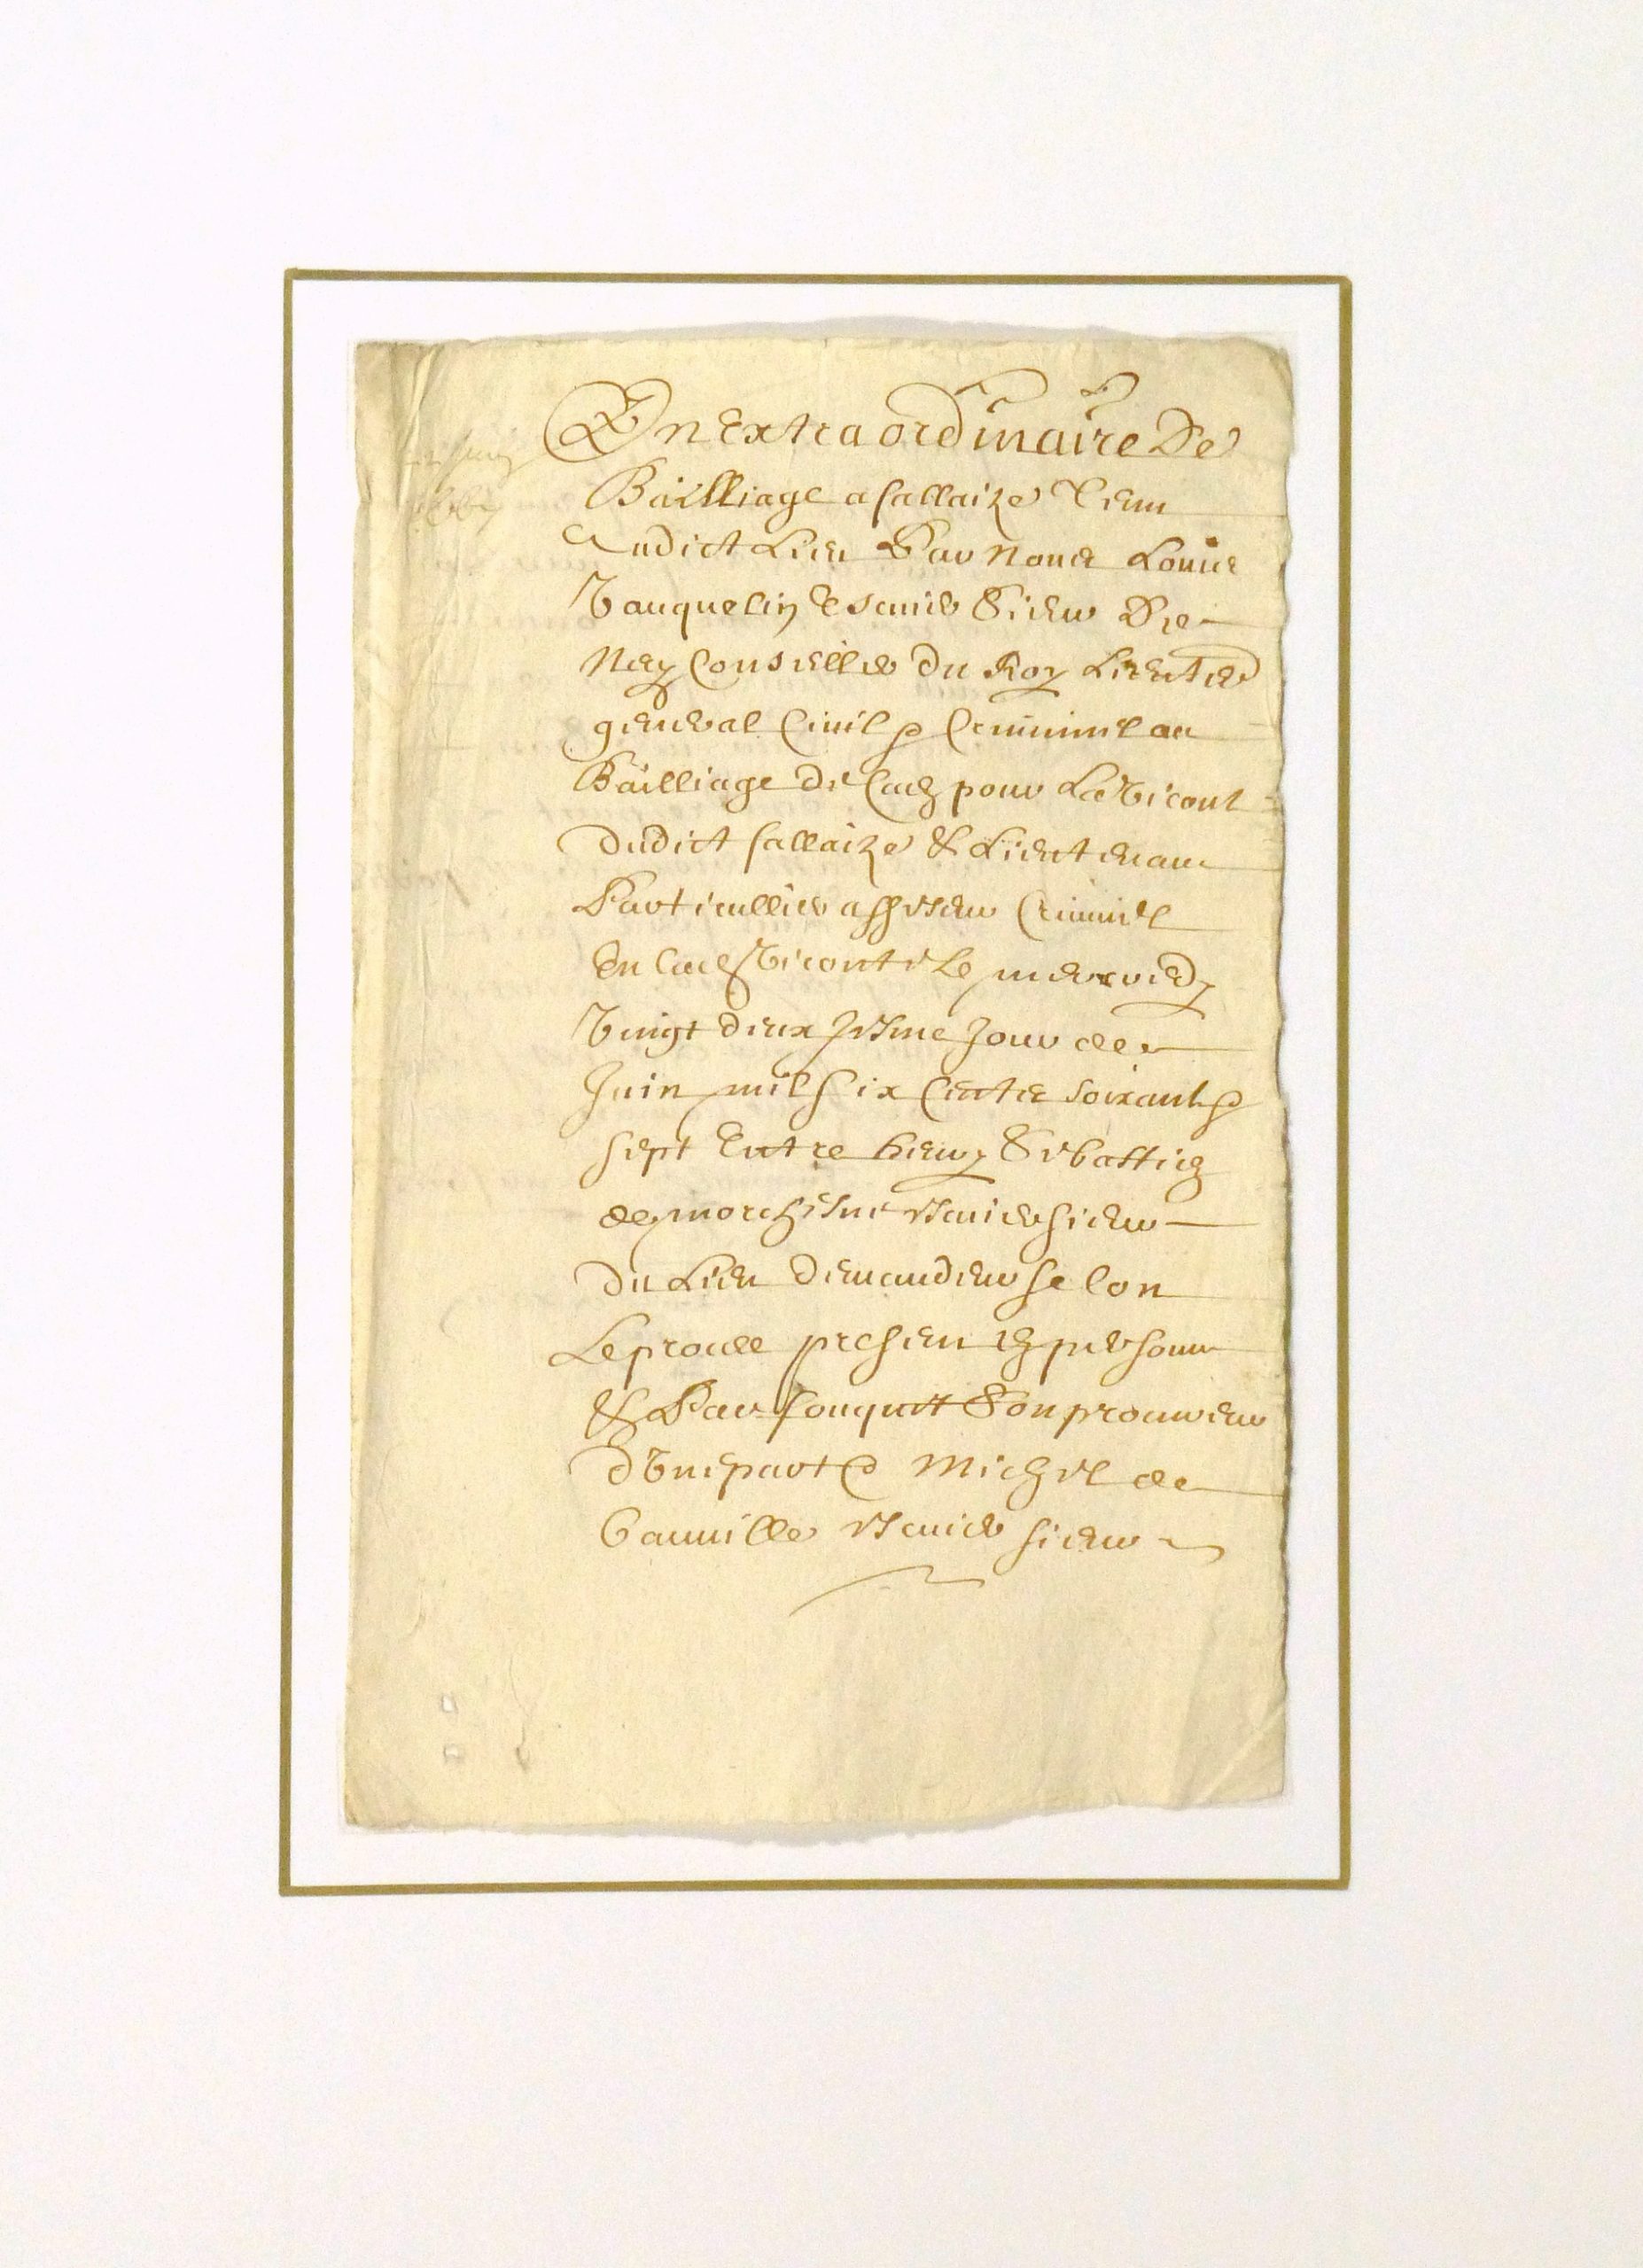 En Extraordinaire De
Bailliage a fallaize Tenu
Audict Lieu Par Nous Louis
Vauquelin Escuier Sieur De
Conseiller du Roy Lieuten
general Civil & Criminel au
Bailliage de Caen pour La Viconte
dudict fallaize & Lieutenant
Particullier assesseur Criminel
En lad Viconte Le mercredy
Vingt deuxiesme Jour de
Juin mil six Centz soixante &
sept Entre henry Sebastien
de escuier sieur
du Lieu demandeur selon
Le procez present en personne
& Par fouquet Son procureur
dUne part & Michel de
escuier sieur